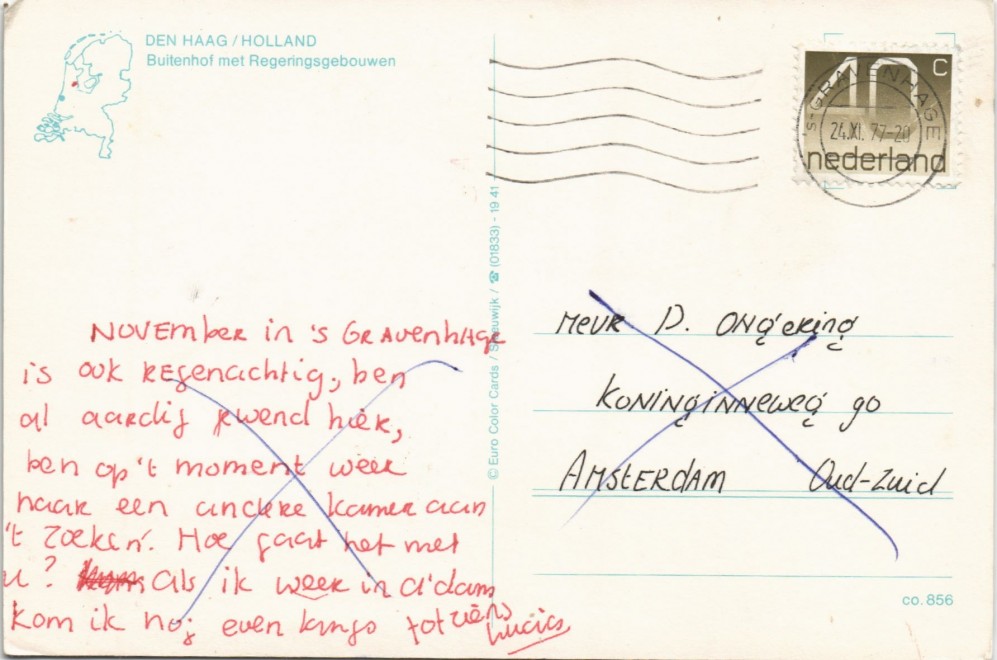 DEN HAAG / HOLLAND
Buitenhof met Regeringsgebouwen
NOVEMBER in 's GRAVENHAGE
is ook REgenachtig, ben
al aardig gewend hier,
ben op 't moment weer
naar een andere kamer aan
't zoeken. Hoe gaat het met
u? als ik weer in a'dam
kom ik nog even langs tot ziens
© Euro Color Cards / Sleeuwijk / ☎ (01833) - 19 41
40 c
nederland
's-GRAVENHAGE
24.XI. 77-20
MEVR D. ONGERING
KONINGINNEWEG 90
AMSTERDAM Oud-Zuid
co. 856